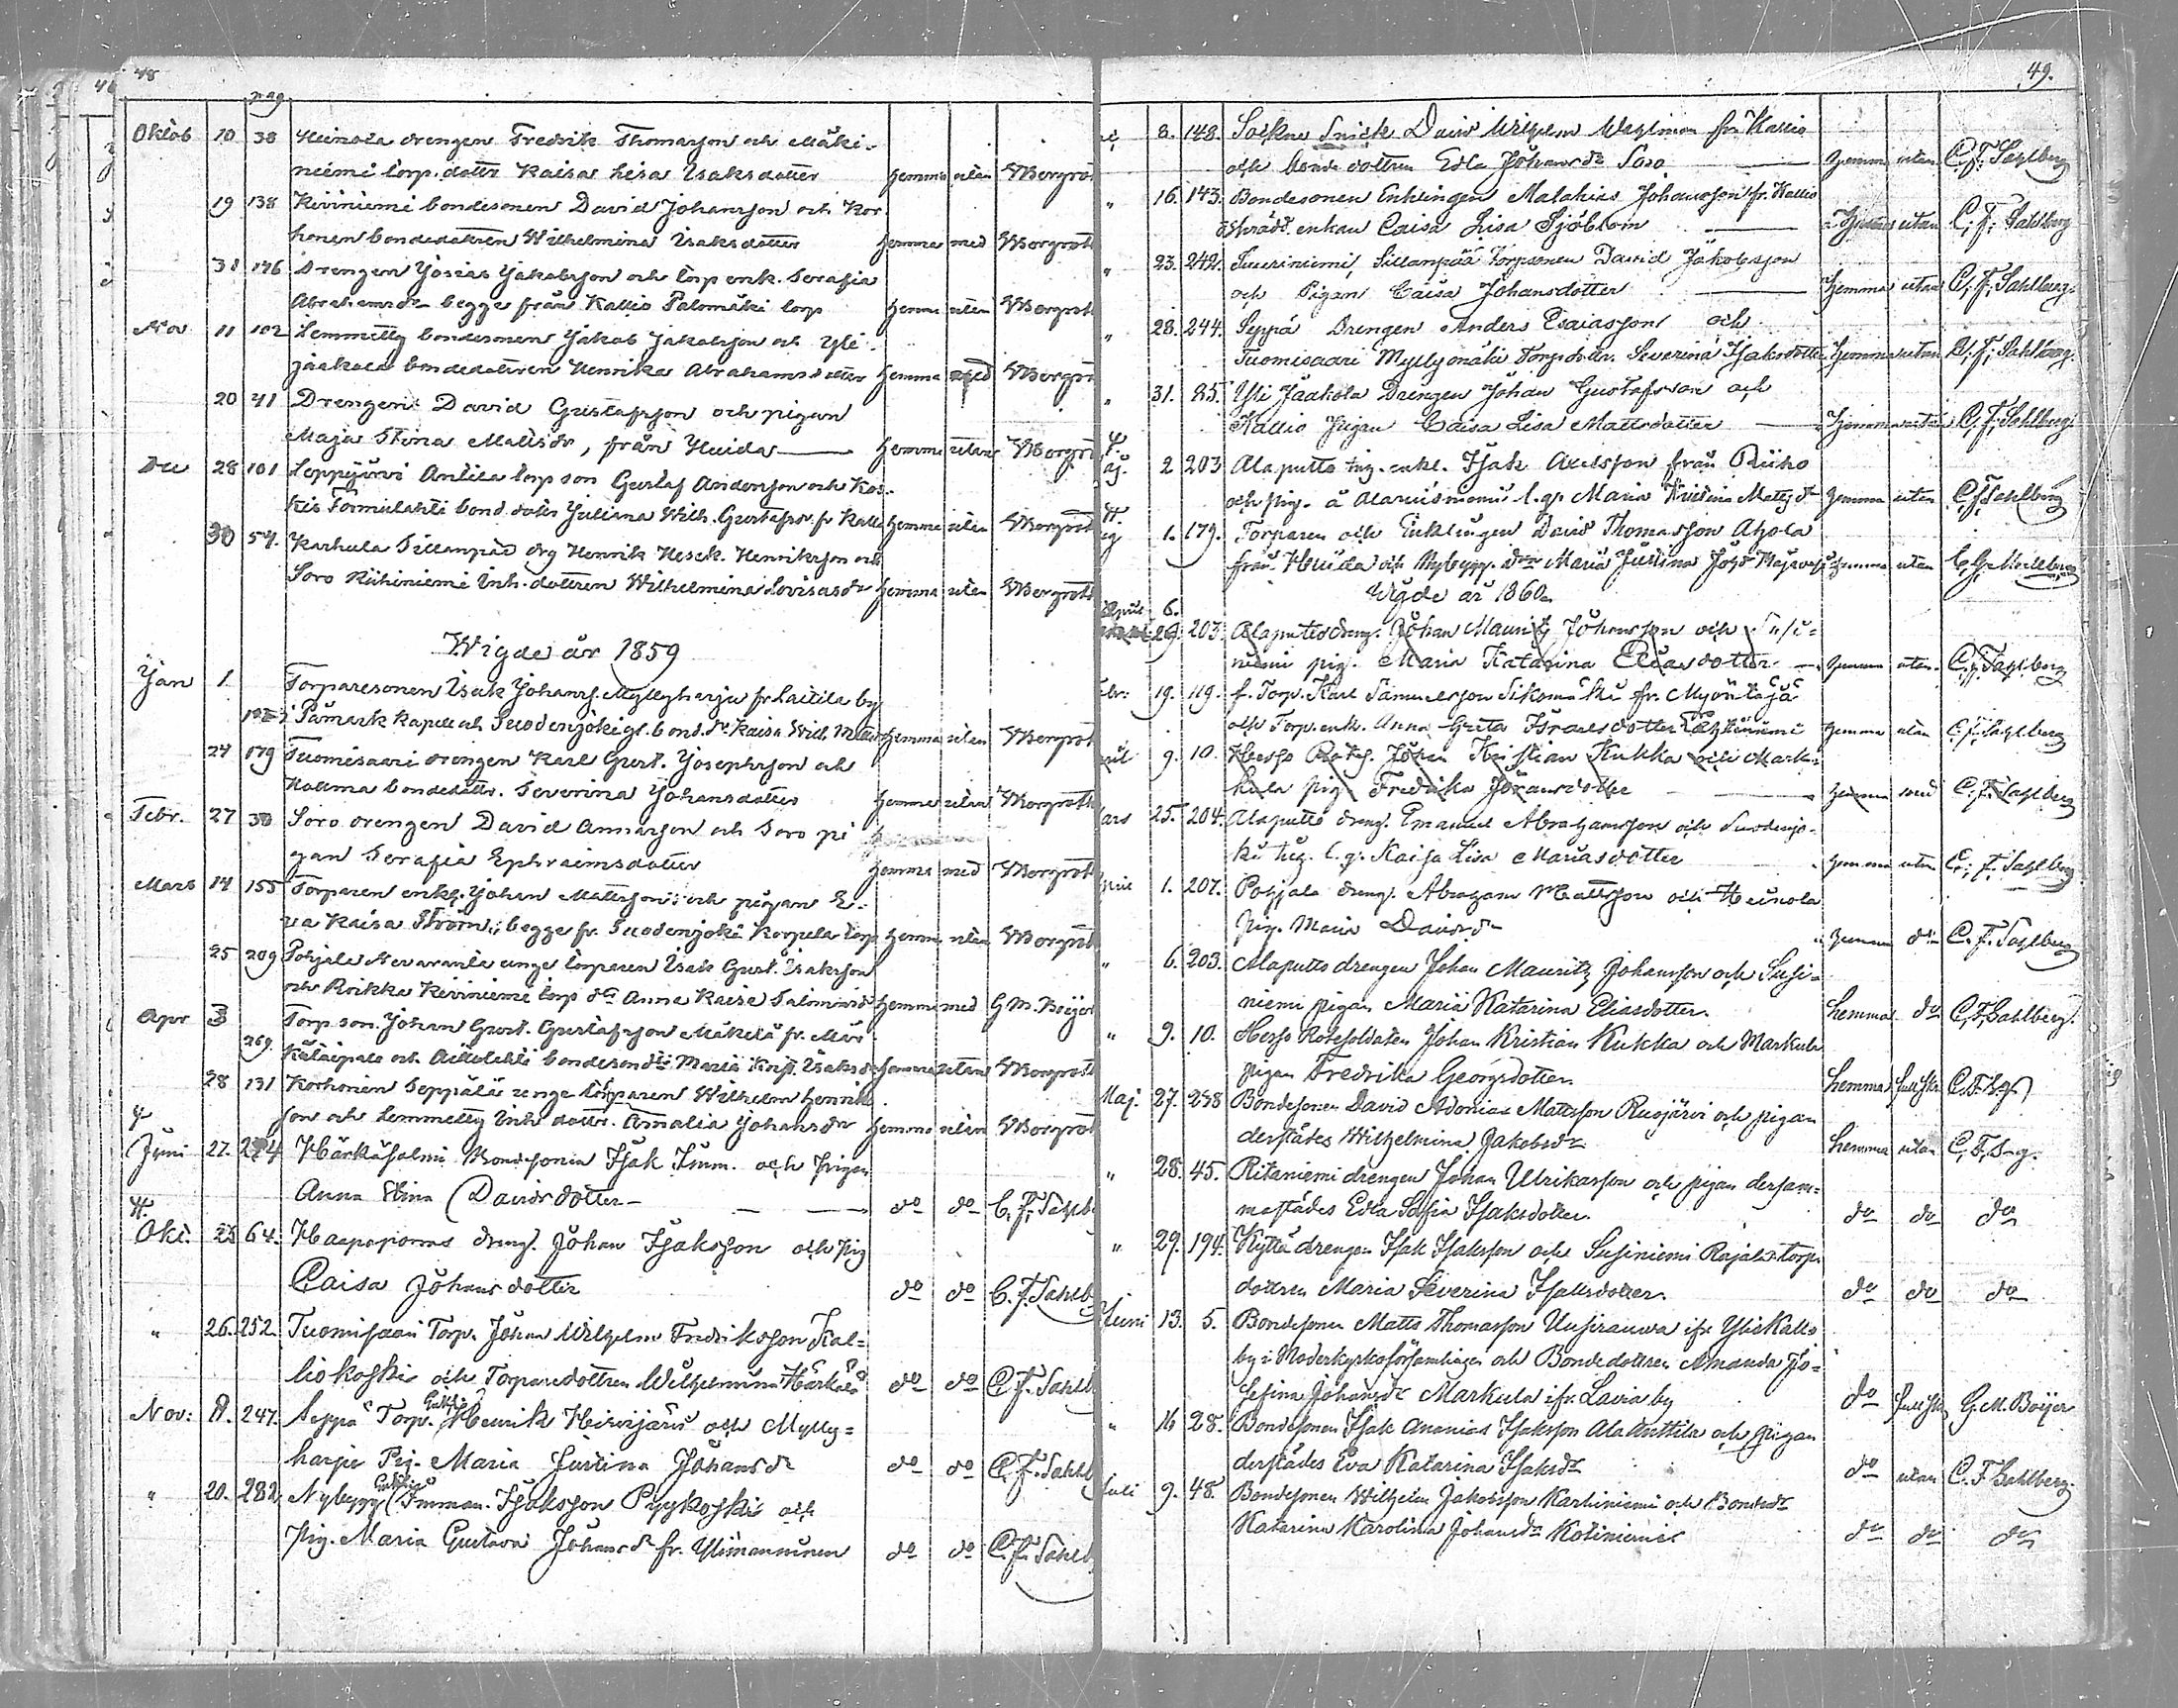 48
pag
Oktob 10 38 Heinola drengen Fredrik Thomasson och Mäki-
niemi torp. dottr Kaisa Lisa Isaksdotter hemma utan
19 138 Keiviniemi bondesonen David Johansson och Kor-
honen bondedottren Wilhelmina Isaksdotter hemma med
31 146 Drengen Josias Jakobsson och torp enk. Serafia
Abrahamsdr begge från Kallio Palomäki torp hemma utan
Nov 11 102 Lemmetty bondesonen Jakob Jakobsson och Yli-
jaakola bondedottren Henrika Abrahamsdotter hemma med
20 41 Drengen David Gustafsson och pigan
Maja Stina Mattsdr, från Huida hemma utan
Dec 28 101 Leppijärvi Antila torp son Gustaf Andersson och Kos-
bond. dottr Juliana Wilh. Gustafsdr fr Kallio hemma utan
30 54. Karhula Sillanpää drg Henrik Hesek. Henriksson och
Soro Riihiniemi inh. dottren Wilhelmina Lovisasdr hemma utan
Wigde år 1859
Jan 1 Torparesonen Isak Johanss. Myllyharju fr. Laitila by
i Påmark kapell och Suodenjoki gl. bond.dr Kaisa Wilh. hemma utan
24 179 Tuomisaari drengen Karl Gust. Josephsson och
bondedottr. Severina Johansdotter hemma utan
Febr. 27 30 Soro drengen David Annasson och Soro pi
gan Serafia Ephraimsdotter hemma med
Mars 14 155 Torparen enkl. Johan Mattsson och pigan E-
va Kaisa Ström, begge fr. Suodenjoki Korpela torp hemma utan
25 209 Pohjala Nevaranta unge torparen Isak Gust. Isaksson
och Roikka Keiviniemi torp dr Anna Kaisa Salomonsdr hemma med G. M. Boijer
Apr 3 Torp son. Johan Gust. Gustafsson Mäkelä fr.
269. och bondesondr Maria Isaksdr hemma utan
28 131 Korhonen Seppälä unge torparen Wilhelm Henriks
son och Lemmetty inh dottr. Amalia Johansdr hemma utan
Juni 27. 274 Härkäsalmi Bondsonen Isak Imm. och pigan
Anna Stina Davidsdotter do do C. F. Sahlb
Okt. 25 64. Haapaporras dreng. Johan Isaksson och pig
Caisa Johansdotter do do C. F. Sahlb
" 26. 252. Tuomisaari Torp. Johan Wilhelm Fredriksson Kal-
liokoski och Torparedottren Wilhelmina do do C. F. Sahlb
Nov: 8. 247. Seppä Torp. Henrik Hirvijärvi och Mylly-
harju Pig. Maria Justina Johansdr do do C. F. Sahlb
" 20. 282. Nybygg. Imman. Isaksson Pyykoski och
pig. Maria Gustava Johansdr fr. Ylimannunen do do C. F. Sahlb
49.
8. 148. Sockne Snick David Wilhelm Wahlman fr. Kallio
och bonde dottren Edla Johansdr Soro hemma utan C. F. Sahlberg
" 16. 143. Bondesonen Enklingen Malakias Johansson fr. Kallio
enkan Caisa Lisa Sjöblom hemma utan C. F. Sahlberg
" 23. 242. Suuriniemi, Sillanpää Torpsonen David Jakobsson
och Pigan Caisa Johansdotter hemma utan C. F. Sahlberg
" 28. 244. Seppä Drengen Anders Esaiasson och
Tuomisaari Myllymäki Torpdottr. Severina Isaksdotter hemma utan C. F. Sahlberg.
" 31. 85. Yli Jaakola Drengen Johan Gustafsson och
Kallio Pigan Caisa Lisa Mattsdotter hemma utan C. F. Sahlberg
2 203 Alaputto enkl. Isak Axelsson från Riiho
och pig. Maria Mattsdr hemma utan C. F. Sahlberg
1. 179. Torparen och Enklingen David Thomasson Ahola
från Huida och Nybygg. dr Maria Justina hemma utan
Wigde år 1860.
April 6.
29. 203. Alaputto dreng. Johan Mauritz Johansson och Susi-
niemi pig. Maria Katarina Eliasdotter hemma utan C. F. Sahlberg
19. 119. f. Torp. Karl Samuelsson Siksmäki fr. Myöntäjä
och Torp. enk. Anna Greta Israelsdotter hemma utan C. F. Sahlberg
9. 10. Hosso Rotes. Johan Kristian Kukka och Mark-
kula pig. Fredrika Göransdotter hemma med C. F. Sahlberg
ars 25. 204. Alaputto dreng. Emanuel Abrahamsson och Suodenjo-
ki Kaisa Lisa Mariasdotter hemma utan C. F. Sahlberg
1. 207. Pohjala dreng. Abraham Mattsson och Heinola
pig. Maria Davidsdr hemma do C. F. Sahlberg
" 6. 203. Alaputto drengen Johan Mauritz Johansson och Susi-
niemi pigan Maria Katarina Eliasdotter. hemma do C. F. Sahlberg.
" 9. 10. Hosso Rotesoldaten Johan Kristian Kukka och Markula
pigan Fredrika Georgsdotter. hemma C. F. S-g.
Maj. 27. 238 Bondesonen David Adonias Mattsson Ruojärvi och pigan
derstädes Wilhelmina Jakobsdr hemma utan C. F. S-g.
" 28. 45. Ritaniemi drengen Johan Ulrikasson och pigan dersam-
mastädes Edla Sofia Isaksdotter. do do do
" 29. 194. Kyttä drengen Isak Isaksson och Susiniemi Rajala torp-
dottren Maria Severina Isaksdotter. do do do
Juni 13. 5. Bondesonen Matts Thomasson Uusirauva ifr Yliskallo
by i Moderkyrkoförsamlingen och Bondedottren Amanda Jo-
sefina Johansdr Markula ifr. Lavia by do G. M. Boijer
" 16 28. Bondesonen Isak Ananias Isaksson Ala Anttila och pigan
derstädes Eva Katarina Isaksdr do utan C. F. Sahlberg.
Juli 9. 48. Bondesonen Wilhelm Jakobsson Karhiniemi och Bondedr
Katarina Karolina Johansdr Kotiniemi do do do